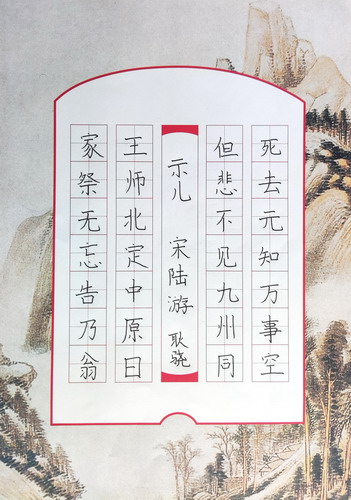 死去元知万事空
但悲不见九州同
示儿 宋陆游 耿骁
王师北定中原日
家祭无忘告乃翁